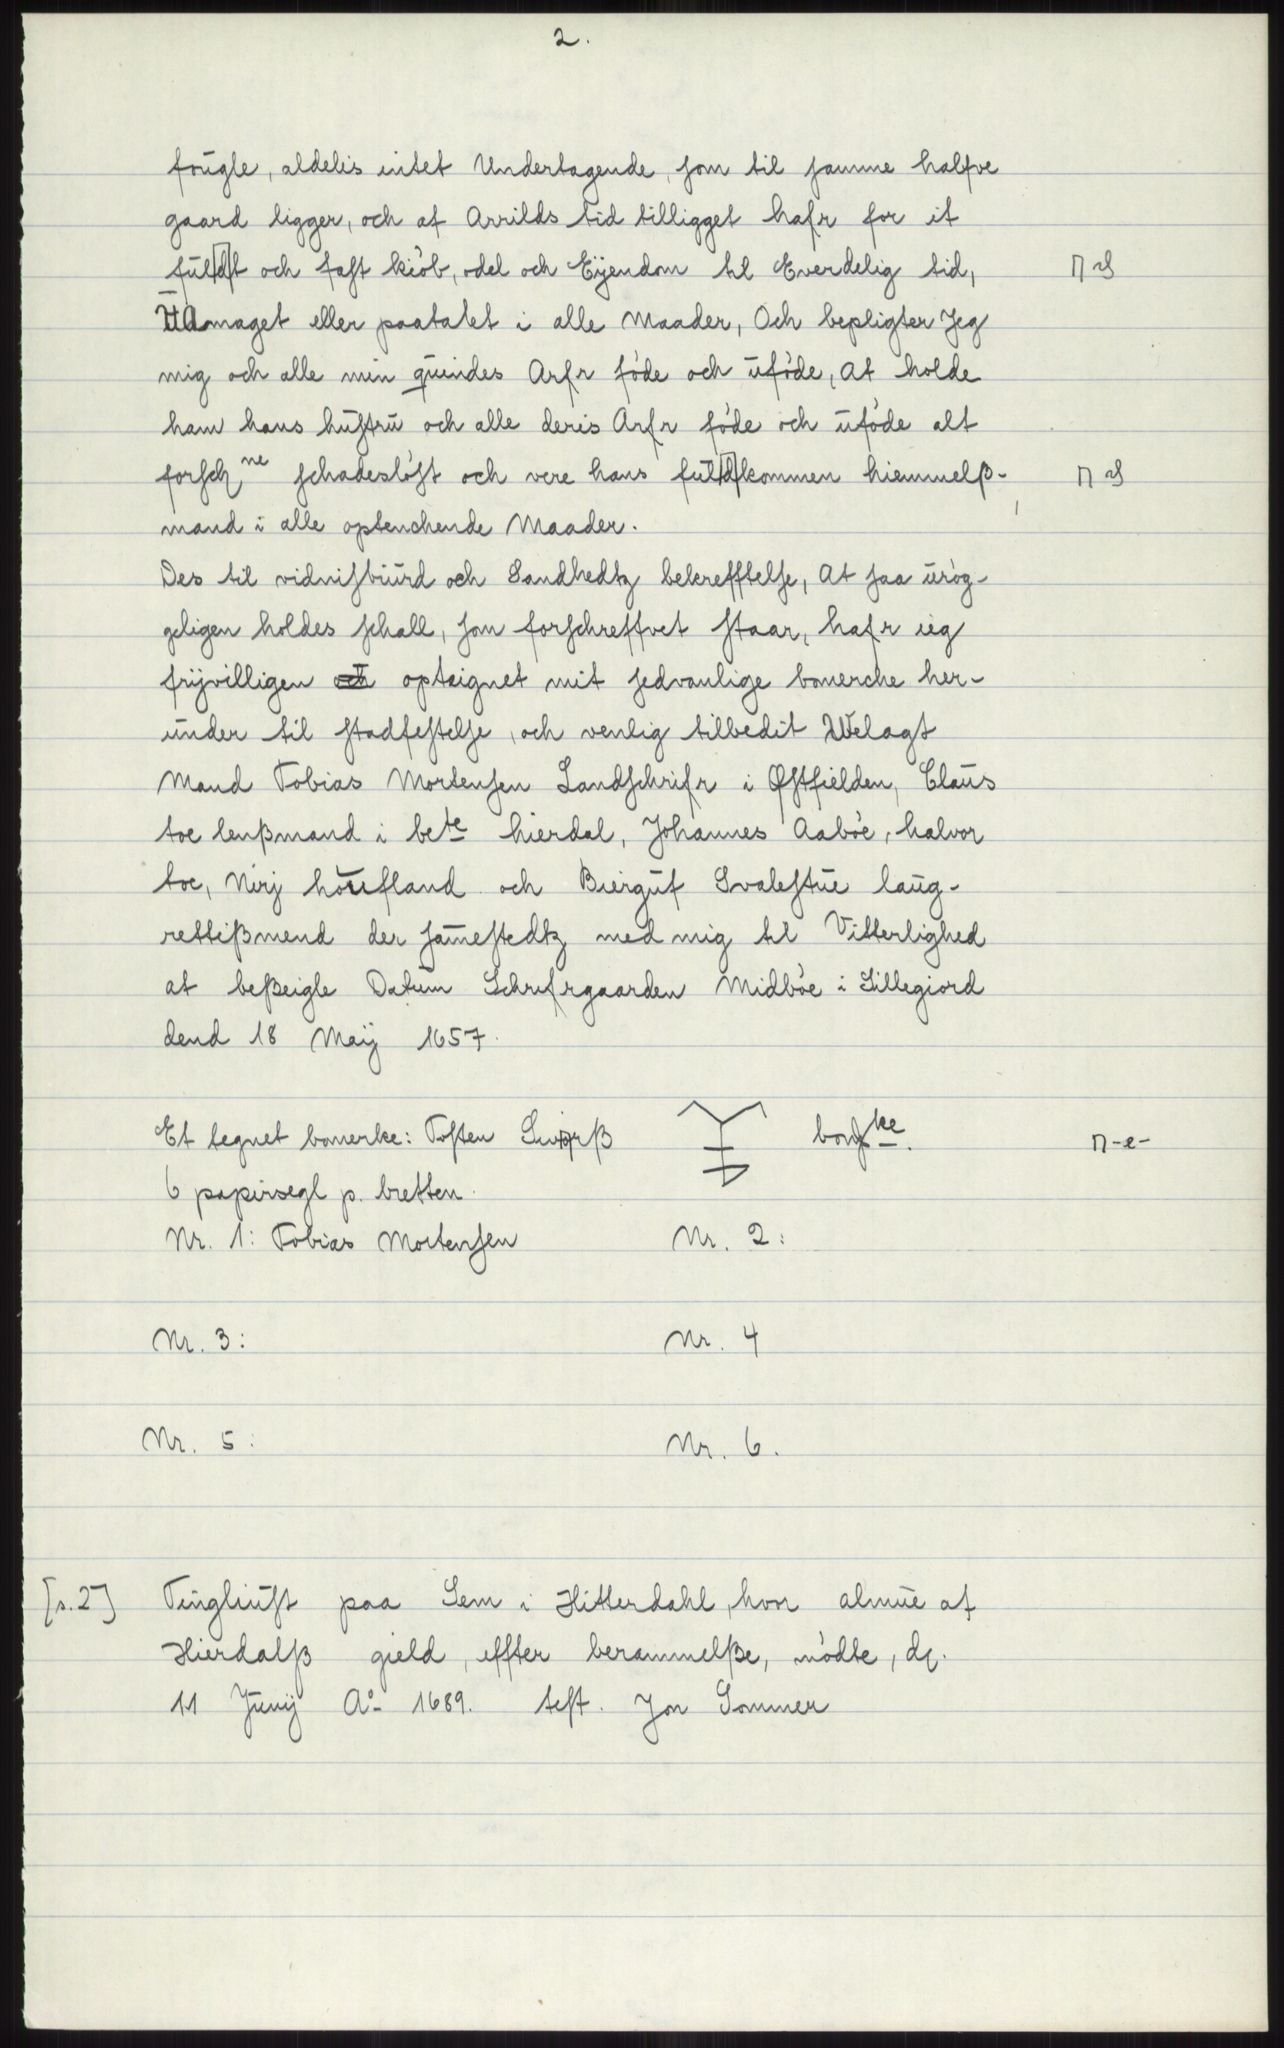 2.
fougle, aldelis intet Undertagende, som til samme halfve
gaard ligger, och af Arrilds tid tilligget hafr for it
fuldt och fast kiöb, odel och Eÿendom til Everdelig tid,
UAmaget eller paatalet i alle Maader, Och bepligter Jeg
mig och alle min quindes Arfr föde och uföde, At holde
ham hans hustru och alle deris Arfr föde och uföde alt
forsch ne schadesløst och vere hans fuldkommen hiemmelß-
mand i alle optenchende Maader.
Des til vidnisbuurd och Sandhedtz bekrefftelse, At saa urög-
geligen holdes schall, som forschreffvet staar, hafr ieg
frÿvilligen och optegnet mit sedvanlige bomerche her-
under til stadfestelse, och venlig tilbedit Welagt
Mand Tobias Mortensen Landschrifr i Østfielden, Claus
toe lenßmand i bete hierdal, Johannes Aaböe, halvor
toe, Nerj houfland och Biergulf Svalestue laug-
rettißmend der samestedtz med mig til Vitterlighed
at beßeigle Datum Schrifrgaarden Midböe i Sillegiord
dend 18 Maÿ 1657.
Et tegnet bomerke: Tosten bomke.
6 papirsegl p. bretten.
Nr. 1: Tobias Mortensen Nr. 2:
Nr. 3: Nr. 4
Nr. 5: Nr. 6.
[s. 2] Tinglüst paa Sem i Hitterdahl, hvor almue af
Hierdalß gield, effter berammelße, mödte, d.
11 Junÿ Ao 1689. test. Jon Sommer